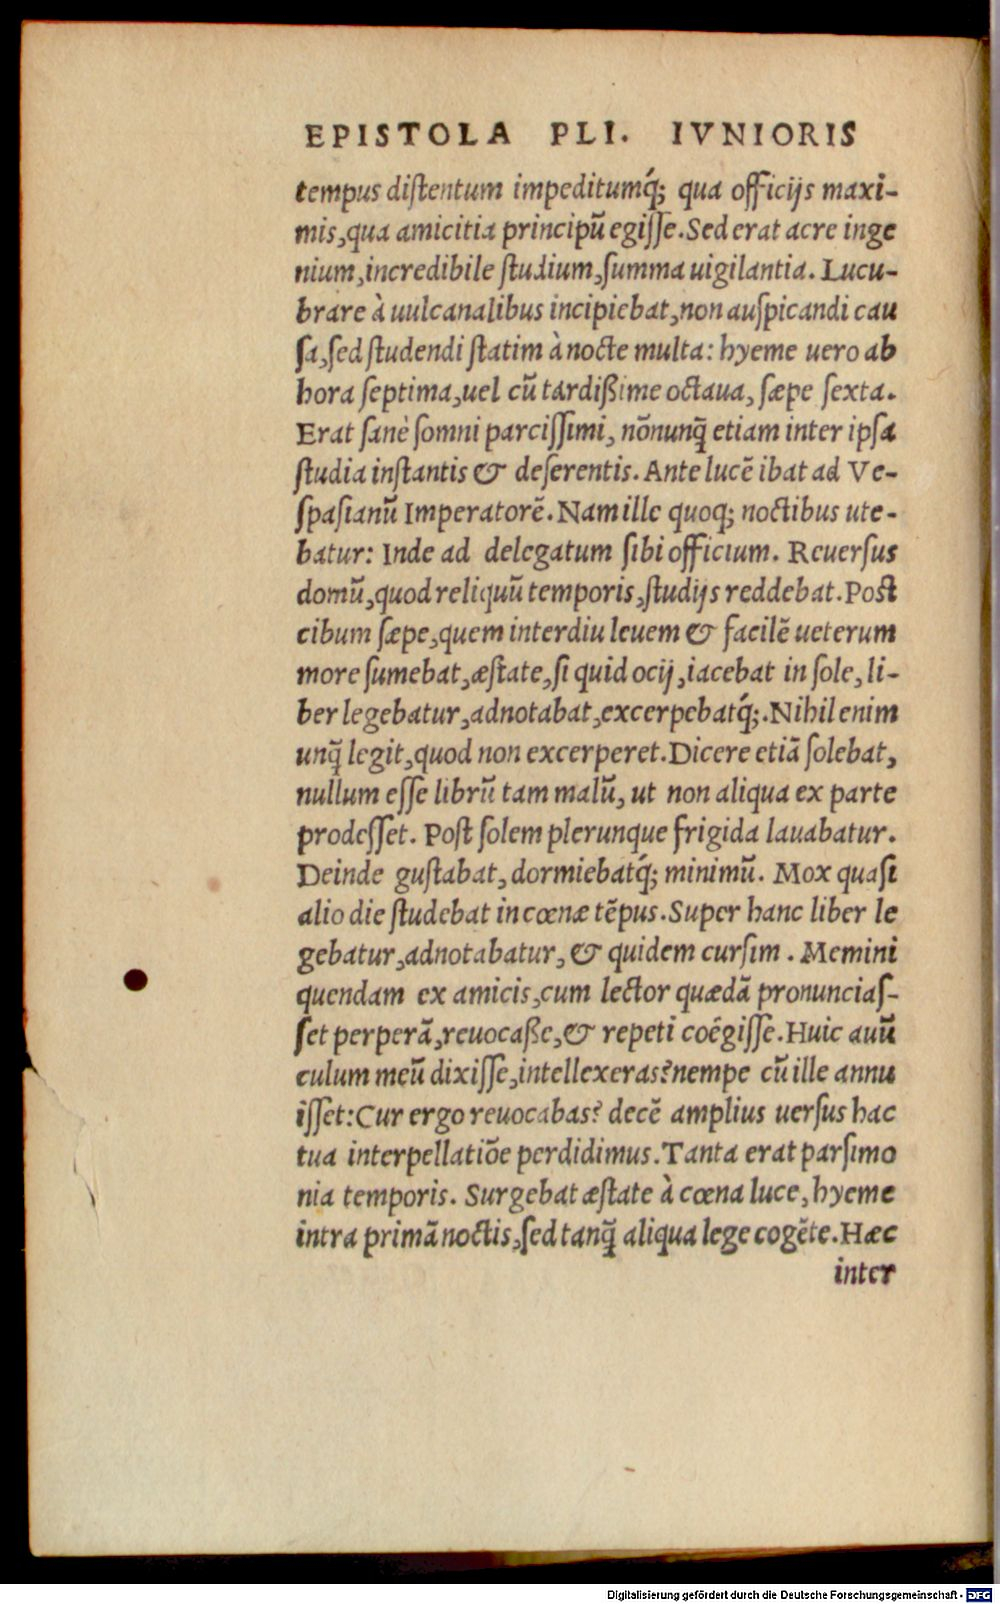 EPISTOLA PLI. IVNIORIS
tempus diſtentum impeditumq́; qua officijs maxi-
mis, qua amicitia principũ egiſſe. Sed erat acre inge
nium, incredibile ſtudium, ſumma uigilantia. Lucu-
brare à uulcanalibus incipiebat, non auſpicandi cau
ſa, ſed ſtudendi ſtatim à nocte multa: hyeme uero ab
hora ſeptima, uel cũ tardißime octaua, ſæpe ſexta.
Erat ſanè ſomni parciſſimi, nõnunq̃ etiam inter ipſa
ſtudia inſtantis & deſerentis. Ante lucẽ ibat ad Ve-
ſpaſianũ Imperatorẽ. Nam ille quoq; noctibus ute-
batur: Inde ad delegatum ſibi officium. Reuerſus
domũ, quod reliquũ temporis, ſtudijs reddebat. Poſt
cibum ſæpe, quem interdiu leuem & facilẽ ueterum
more ſumebat, æſtate, ſi quid ocij, iacebat in ſole, li-
ber legebatur, adnotabat, excerpebatq́;. Nihil enim
unq̃ legit, quod non excerperet. Dicere etiã ſolebat,
nullum eſſe librũ tam malũ, ut non aliqua ex parte
prodeſſet. Poſt ſolem plerunque frigida lauabatur.
Deinde guſtabat, dormiebatq́; minimũ. Mox quaſi
alio die ſtudebat in cœnæ tẽpus. Super hanc liber le
gebatur, adnotabatur, & quidem curſim. Memini
quendam ex amicis, cum lector quædã pronunciaſ-
ſet perperã, reuocaße, & repeti coëgiſſe. Huic auũ
culum meũ dixiſſe, intellexeras? nempe cũ ille annu
iſſet: Cur ergo reuocabas? decẽ amplius uerſus hac
tua interpellatiõe perdidimus. Tanta erat parſimo
nia temporis. Surgebat æſtate à cœna luce, hyeme
intra primã noctis, ſed tanq̃ aliqua lege cogẽte. Hæc
inter
Digitalisierung gefördert durch die Deutsche Forschungsgemeinschaft - DFG